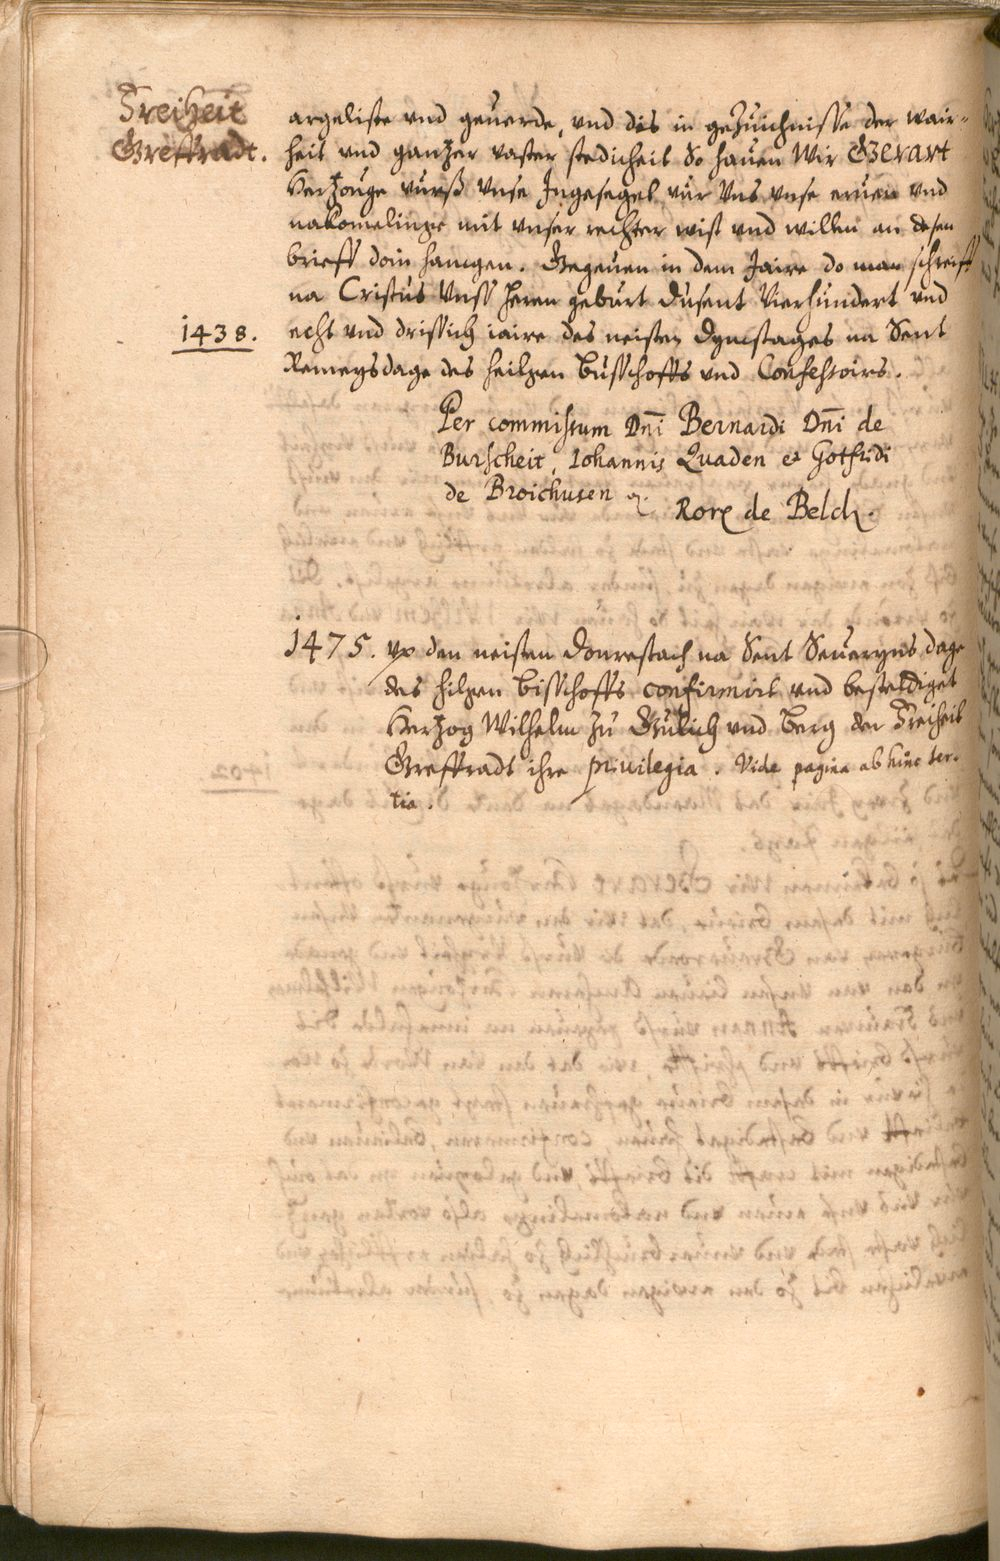 Freiheit
Greffradt.
argeliste vnd geuerde, vnd dis in gezuichnisse der wair-
heit vnd gantzer vaster stedicheit So hauen Wir Gerart
Hertzouge vurß vnse Ingesegel vur Vns vnse eruen vnd
nakomelinge mit vnser rechter wist vnd willen an desen
brieff doin hangen. Gegeuen in dem Jaire do man schreiff
na Cristus Vnss heren geburt Dusent Vierhundert vnd
1438.
echt vnd drissich iaire des neisten Dynstages na Sent
Remeysdage des heilgen Busschoffs vnd Confessoirs.
Per commissum Dni Bernardi Dni de
Burscheit, Iohannis Quaden et Gotfridi
de Broichusen
Rorx de Belch.
1475. vp den neisten Donrestach na Sent Seueryns dage
des hilgen bisschoffs confirmirt vnd bestediget
Hertzog Wilhelm zu Gulich vnd Berg der Freiheit
Greffradt ihre priuilegia. Vide pagina ab hinc ter-
tia.